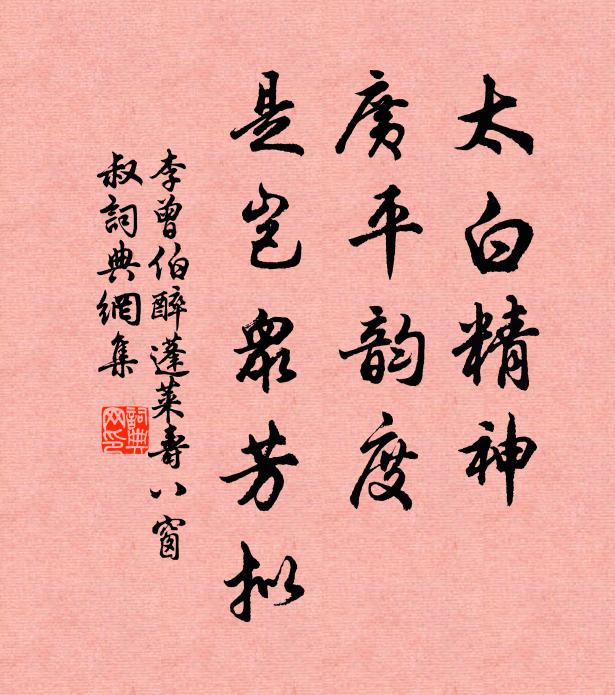 太白精神
廣平韵度
是岂眾芳拟
李曾伯醉蓬萊壽八窗
叔詞典網集
詞典
网印